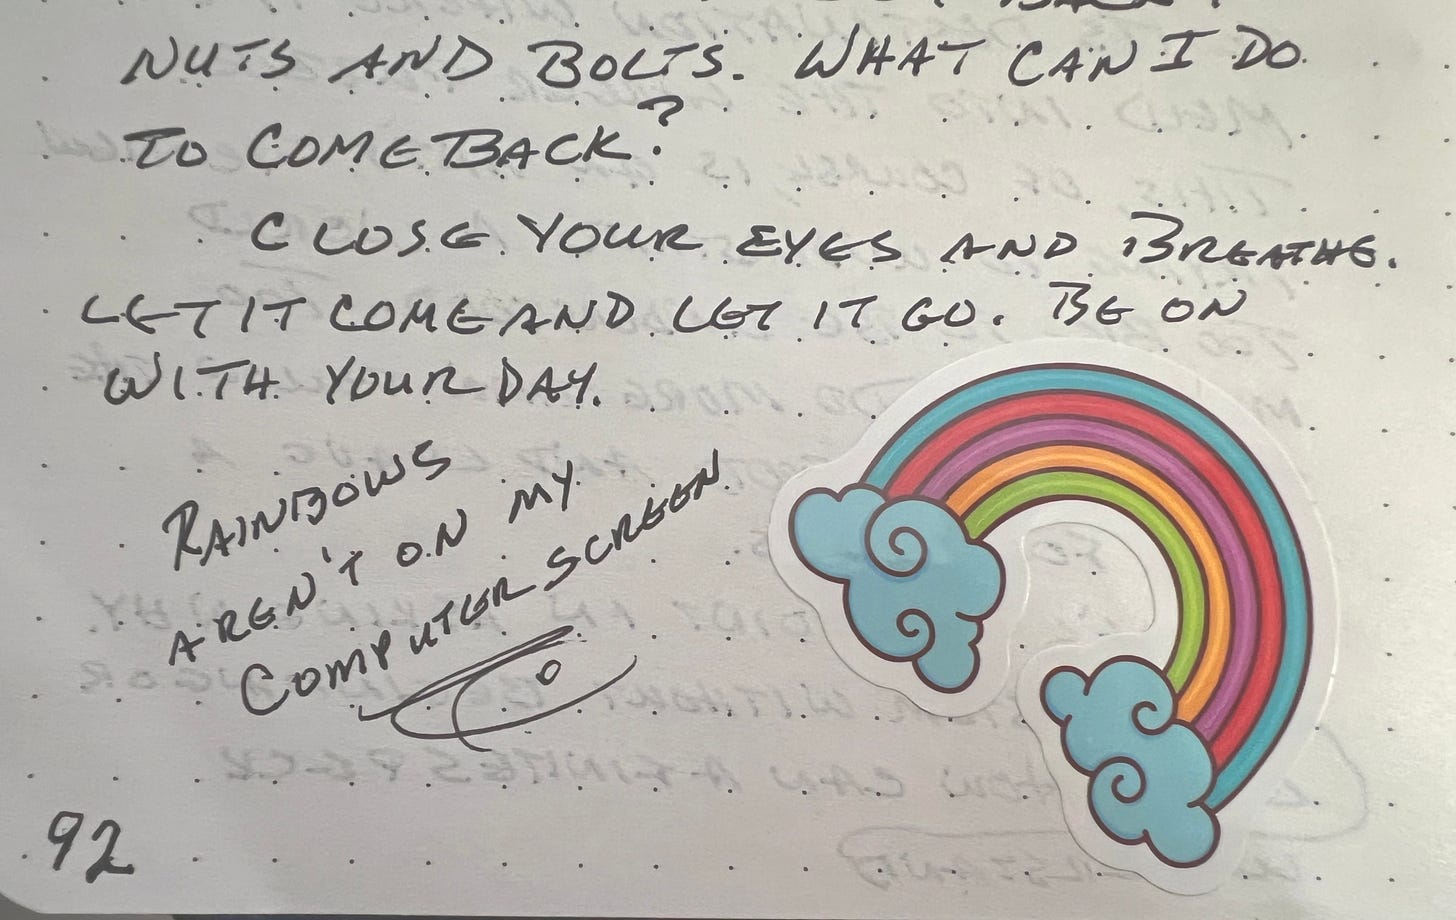 NUTS AND BOLTS. WHAT CAN I DO
TO COME BACK?
CLOSE YOUR EYES AND BREATHE.
LET IT COME AND LET IT GO. BE ON
WITH YOUR DAY.
RAINBOWS
AREN'T ON MY
COMPUTER SCREEN
92